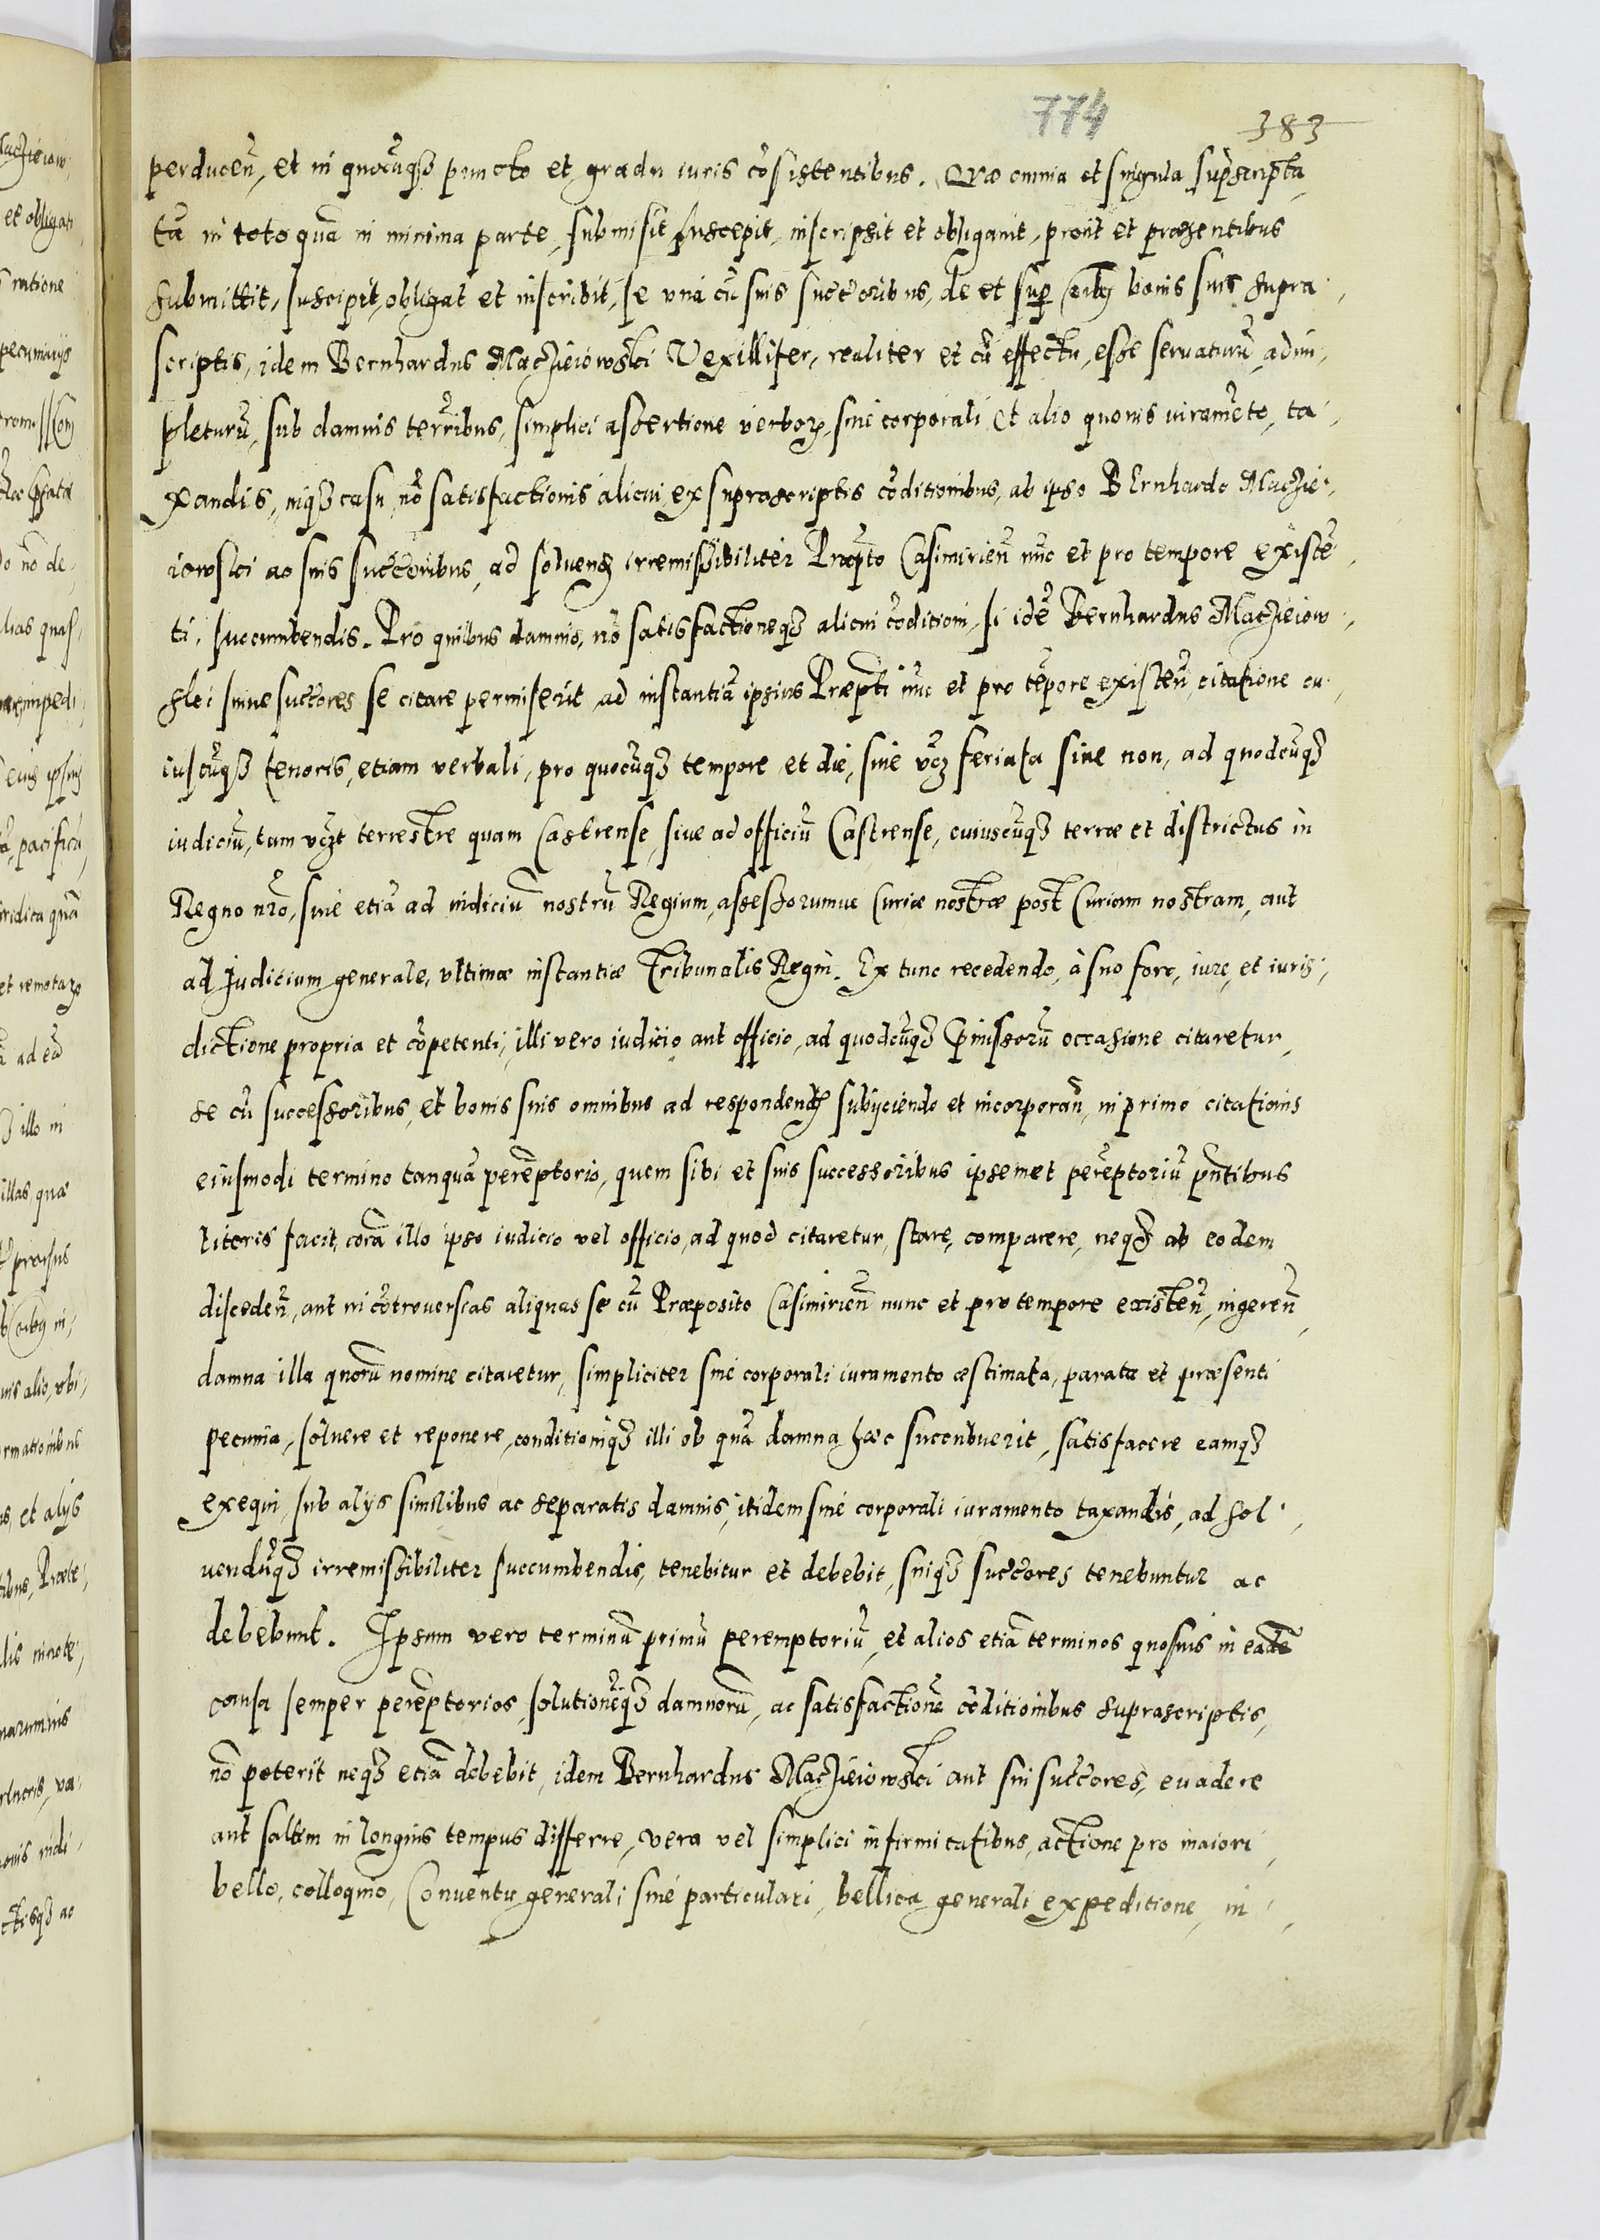 774
383
perducen̄, et in quocūqȝ puncto et gradu iuris cōsistentibus. Quæ omnia et singula sup̄scripta,
tā in toto quā in minima parte, submisit suscepit, inscripsit et obligauit, prout et præsentibus
submittit, suscipit, obligat et inscribit, se vnā cū suis succ̄oribus, de et sup̄ oībꝫ bonis suis supra,
scriptis, idem Bernhardus Maczieiowski Vexillifer, realiter et cū effectu, esse seruaturū, adim,
pleturū, sub damnis terr̄ibus, simplici assertione verborꝝ, sine corporali et alio quouis iuramēto, ta,
xandis, inqȝ casu nō satisfactionis alicui ex suprascriptis cōditionibus, ab ipso Bernhardo Maczie,
iowski ac suis succ̄oribus, ad soluendꝫ irremissibiliter Præp̄to Casimirien̄ nūc et pro tempore existē,
ti, succumbendis. Pro quibus damnis, nō satisfactioneqȝ alicui cōditioni, si idē Bernhardus Maczieiow,
ski siue succ̄ores se citare permiserit, ad instantiā ipsius Præp̄ti nūc et pro tēpore existen̄, citatione cu,
iuscūqȝ tenoris, etiam verbali, pro quocūqȝ tempore et die, siue vꝫ feriata siue non, ad quodcūqȝ
iudiciū, tam vꝫt terrestre quam Castrense, siue ad officiū Castrense, cuiuscūqȝ terræ et districtus in
Regno nr̄o, siue etiā ad iudiciū nostrū Regium, assessorumue Curiæ nostræ post Curiam nostram, aut
ad Judicium generale, vltimæ instantiæ Tribunalis Regni. Ex tunc recedendo, à suo foro, iure, et iuris,
dictione propria et cōpetenti, illi vero iudicio aut officio, ad quodcūqȝ p̄missorū occasione citaretur,
se cū successoribus, et bonis suis omnibus ad respondendꝫ subijciendo et incorporan̄, in primo citationis
eiusmodi termino tanquā perēptorio, quem sibi et suis successoribus ipsemet perēptoriū pn̄tibus
literis facit, corā illo ipso iudicio vel officio, ad quod citaretur, stare, comparere, neqȝ ab eodem
disceden̄, aut in cōtrouersias aliquas se cū Præposito Casimirien̄ nunc et pro tempore existen̄, ingeren̄,
damna illa quorū nomine citaretur, simpliciter sine corporali iuramento æstimata, parata et præsenti
pecunia, soluere et reponere, conditioniqȝ illi ob quā damna hæc succubuerit, satisfacere eamqȝ
exequi, sub alijs similibus ac separatis damnis, itidem sine corporali iuramento taxandis, ad sol,
uendūqȝ irremissibiliter succumbendis, tenebitur et debebit, suiqȝ succ̄ores tenebuntur ac
debebunt. Ipsum vero terminū primū peremptoriū, et alios etiā terminos quosuis in eadē
causa semper perēptorios, solutionēqȝ damnorū, ac satisfactionē cōditionibus suprascriptis,
nō poterit neqȝ etiā debebit, idem Bernhardus Maczieiowski aut sui succ̄ores, euadere
aut saltim in longius tempus differre, vera vel simplici infirmitatibus, actione pro maiori,
bello, colloquio, Conuentu generali siue particulari, bellica generali expeditione, in,